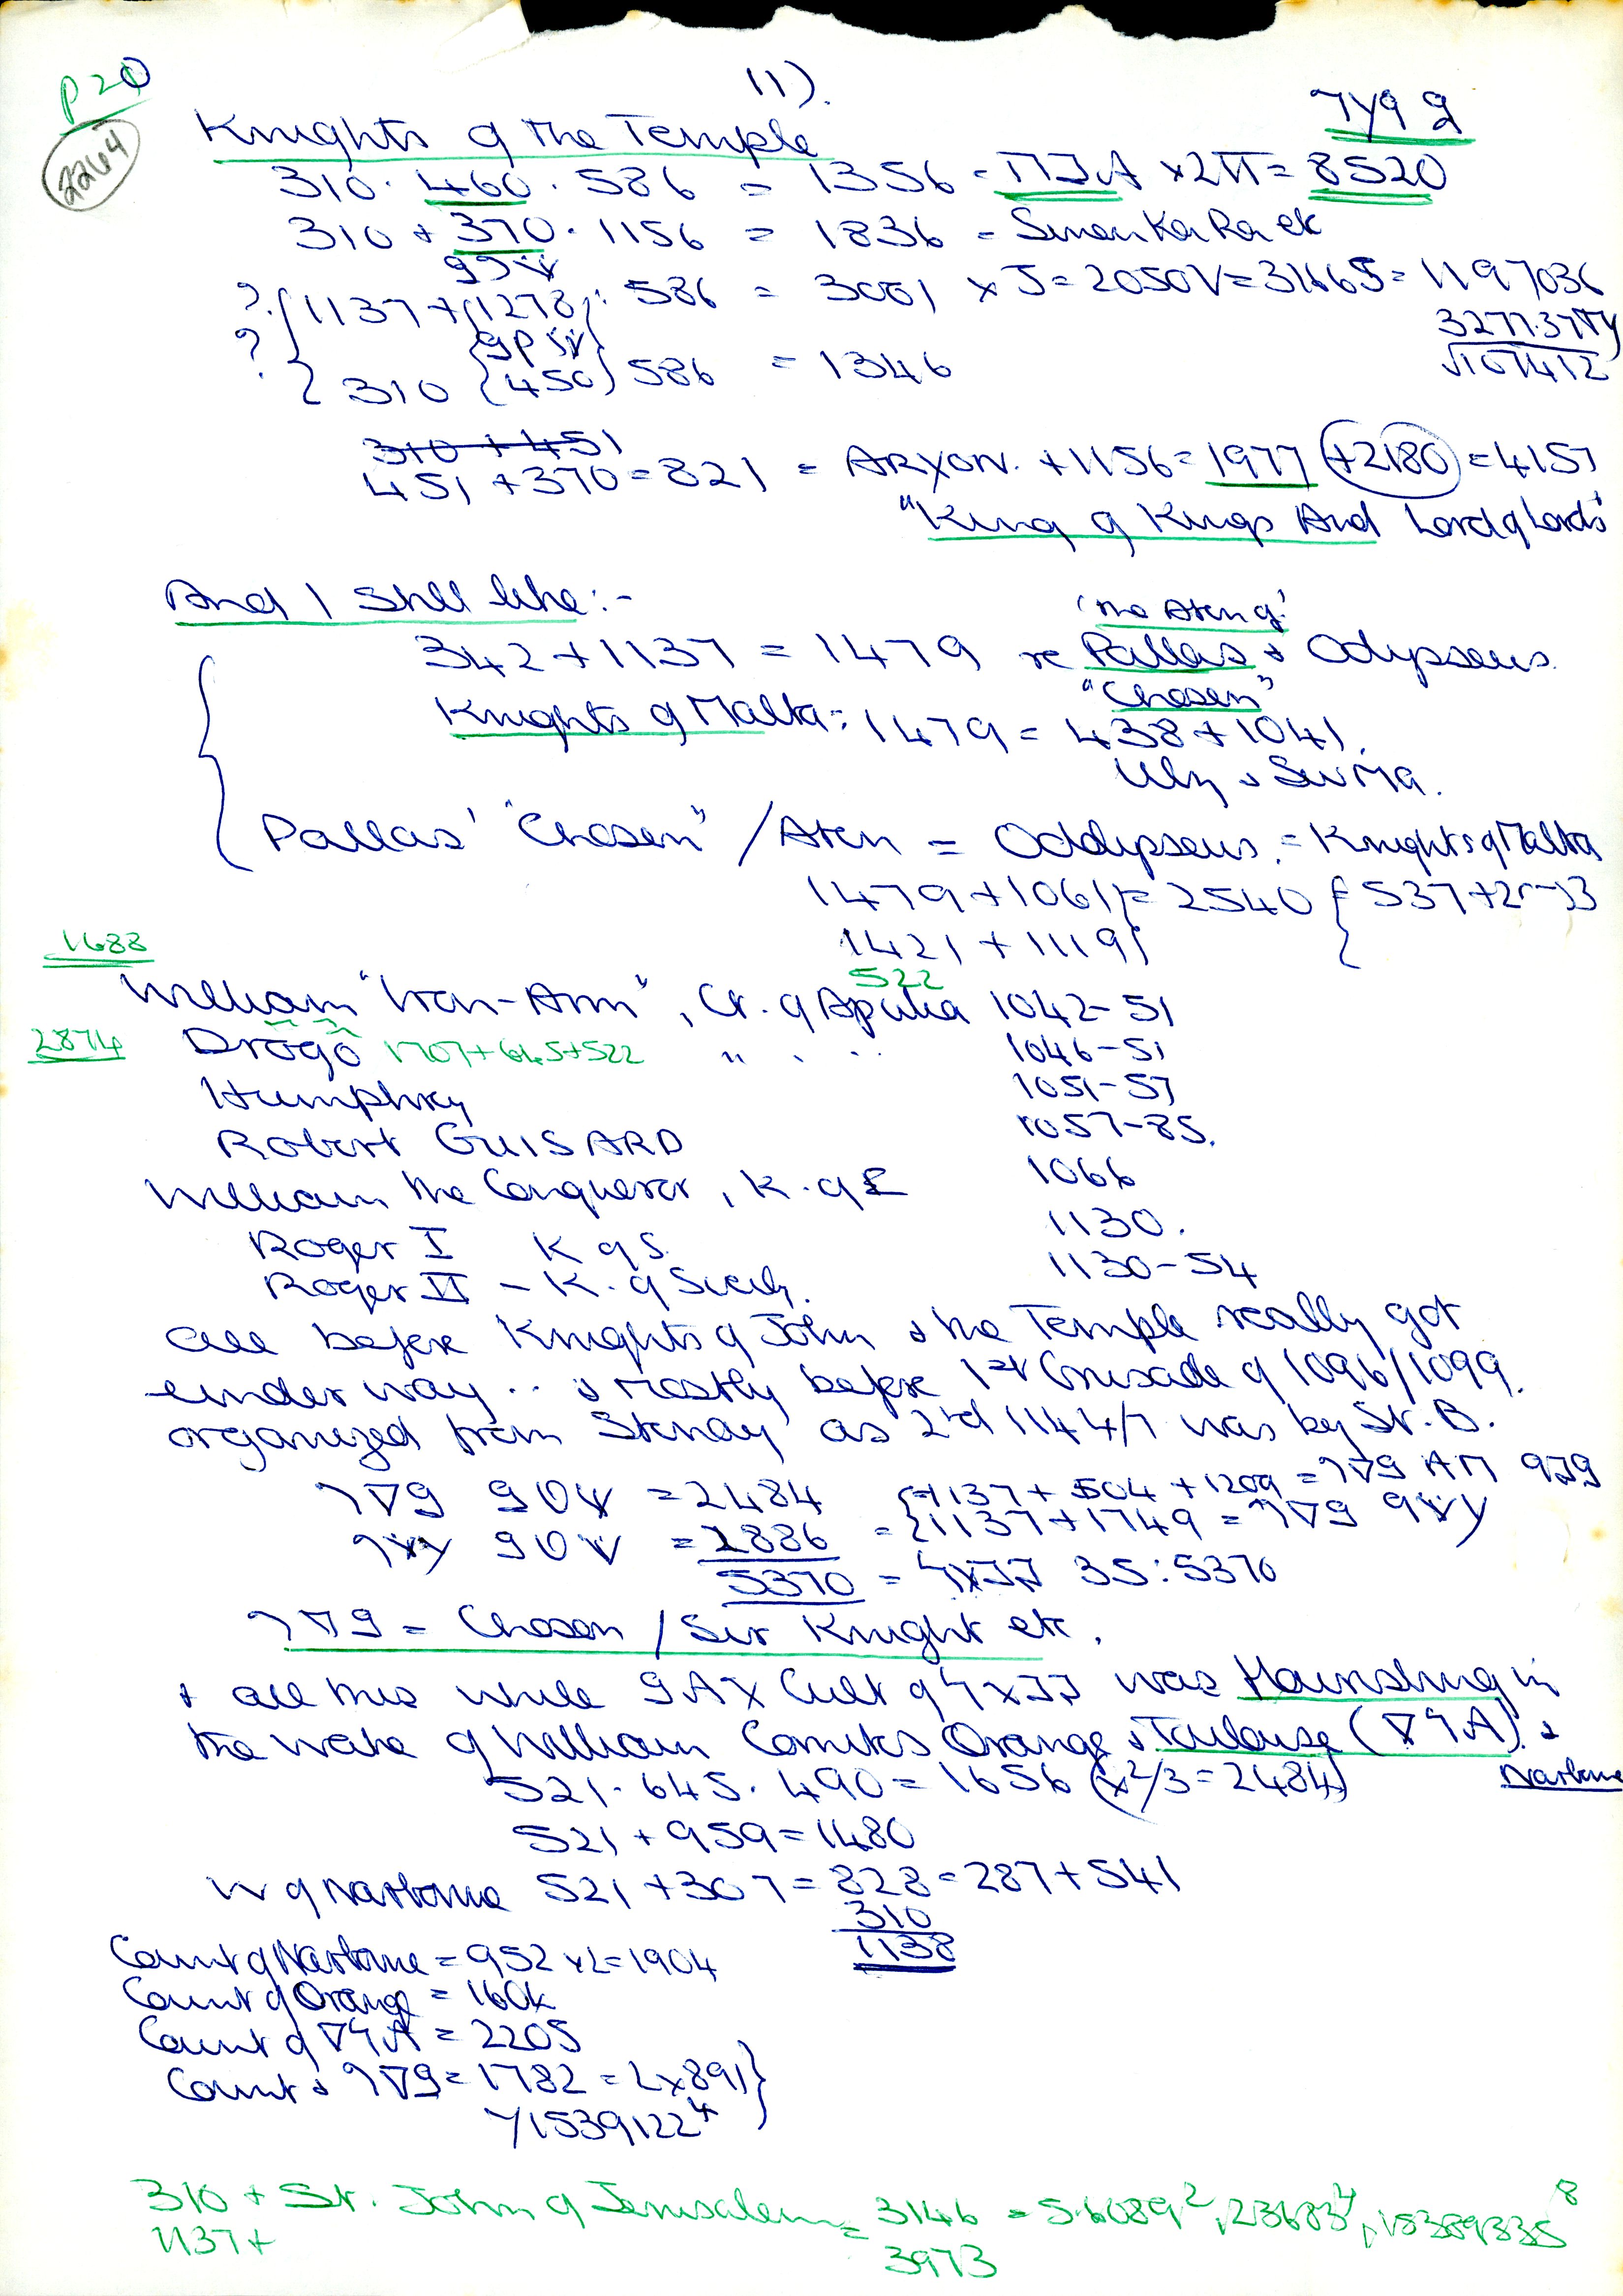 P20
11).
2264
Knights of the Temple
310. 460. 586 = 1356 = × 2π = 8520
310 + 370. 1156 = 1836 = SmenKaRa etc
? {1137 + (1278) : 586 = 3001 × J = 2050V = 3166J = 1197036
3277.37
√107412
? { 310 {450} 586 = 1346
310 + 451
451 + 370 = 821 = ARYON. + 1156 = 1977 +2180 = 4157
"King of Kings And Lord of Lords"
And I Still like :-
'the Aten of'
342 + 1137 = 1479 re Pallas & Odypseus.
"Chosen"
Knights of Malta : 1479 = 438 + 1041.
Pallas' "Chosen" / Aten = Oddypseus. = Knights of Malta
1479 + 1061} = 2540 { 537 +
1421 + 1119}
1688
522
William "Iron-Arm", Ct. of Apulia 1042-51
2874
Drogo 1707+645+522 " . .. 1046-51
Humphrey 1051-57
Robert GUISARD 1057-85.
William the Conqueror, K. of E 1066
Roger I K of S. 1130.
Roger II - K. of Sicily. 1130-54
all before Knights of John & the Temple really got
under way .. & mostly before 1st Crusade of 1096/1099.
organized from Stenay as 2nd 1144/7 was by St. B.
= 2484 = {1137 + 504 + 1209 =
= 2886 = {1137 + 1749 =
5370 = 35:5370
= Chosen / Sir Knight etc.
+ all this while Cult of was flourishing in
the wake of William Comites Orange & Toulouse ( ) &
Narbonne
521. 645. 490 = 1656 (x²/3 = 2484)
521 + 959 = 1480
W of Narbonne 521 + 307 = 828 = 287 + 541
310
1138
Count of Narbonne = 952 × 2 = 1904
Count of Orange = 160
Count of = 2205
Count & = 1782 = 2×891}
1539122⁴
310 + St. John of Jerusalem = 3146 = 56.089², 23683⁴, 15389335⁸
1137 + 3973